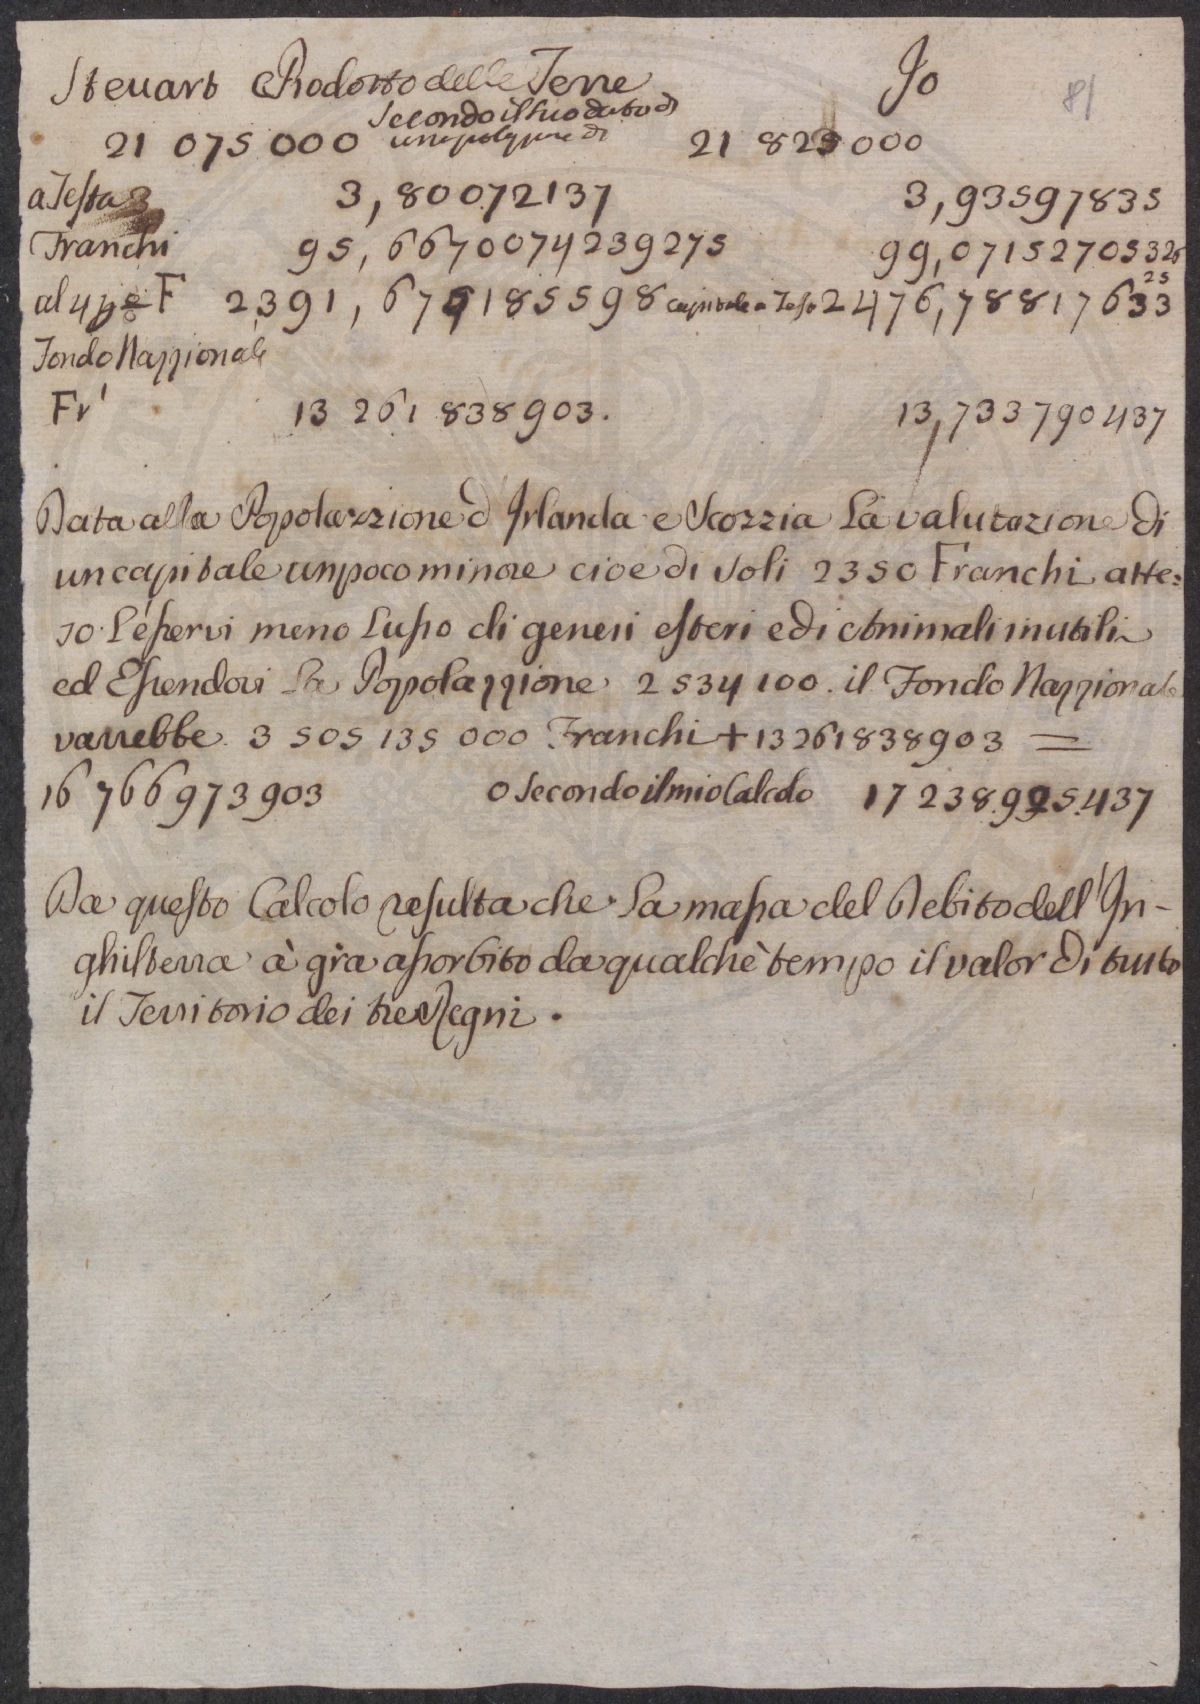 Steuart Prodotto delle Terre Io 81
secondo il suo dato di
21 075 000 21 825 000
a Testa 3,80072137 3,93597835
Franchi 95,6670074239275 99,07152705325
al 4 p% F 2391,675185598 capitale a Testa 2476,7881763325
Fondo Nazzionale
Fr 13 261 838 903. 13,733 790 437
Data alla Popolazzione d'Irlanda e Scozzia La valutazione di
un capitale un poco minore cioe di soli 2350 Franchi atte=
so L'eßervi meno Lußo di generi esteri e di Animali inutili
ed Eßendovi La Popolazzione 2 534 100. il Fondo Nazzionale
varrebbe 3 505 135 000 Franchi + 13261838903 =
16 766 973 903 o secondo il mio Calcolo 17 238.925.437
Da questo Calcolo resulta che La maßa del Debito dell'In-
ghilterra à già aßorbito da qualchè tempo il valor di tutto
il Territorio dei tre Regni.